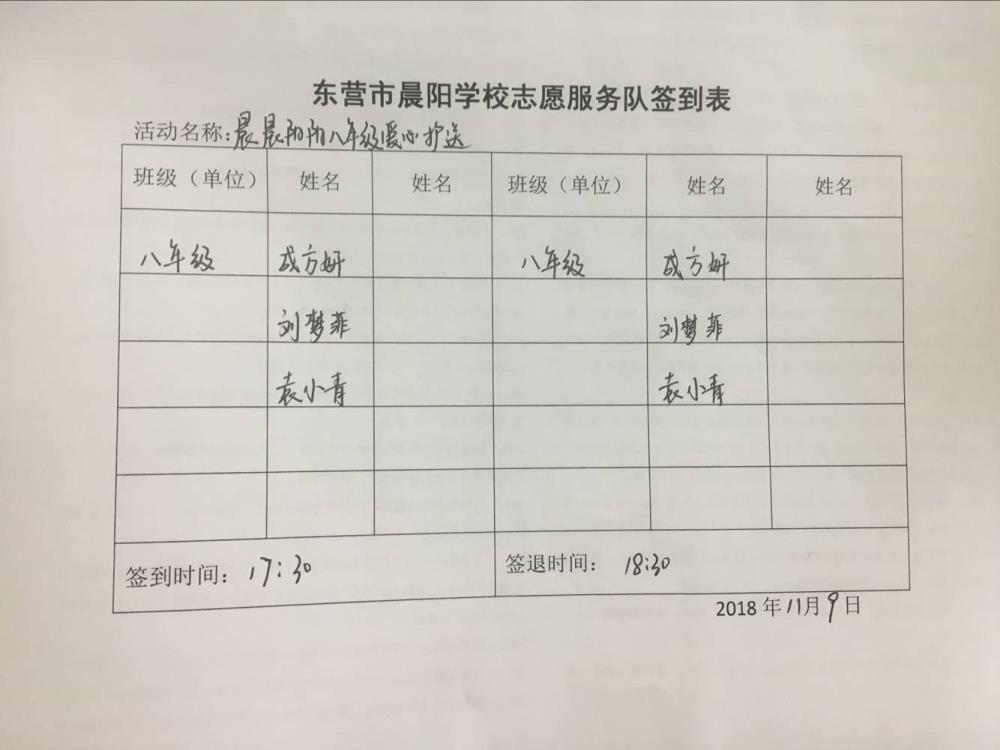 东营市晨阳学校志愿服务队签到表
活动名称:晨晨阳阳八年级暖心护送
班级（单位） 姓名 姓名 班级（单位） 姓名 姓名
八年级 成方妍 八年级 成方妍
刘梦菲 刘梦菲
袁小青 袁小青
签到时间：17:30 签退时间：18:30
2018年11月9日